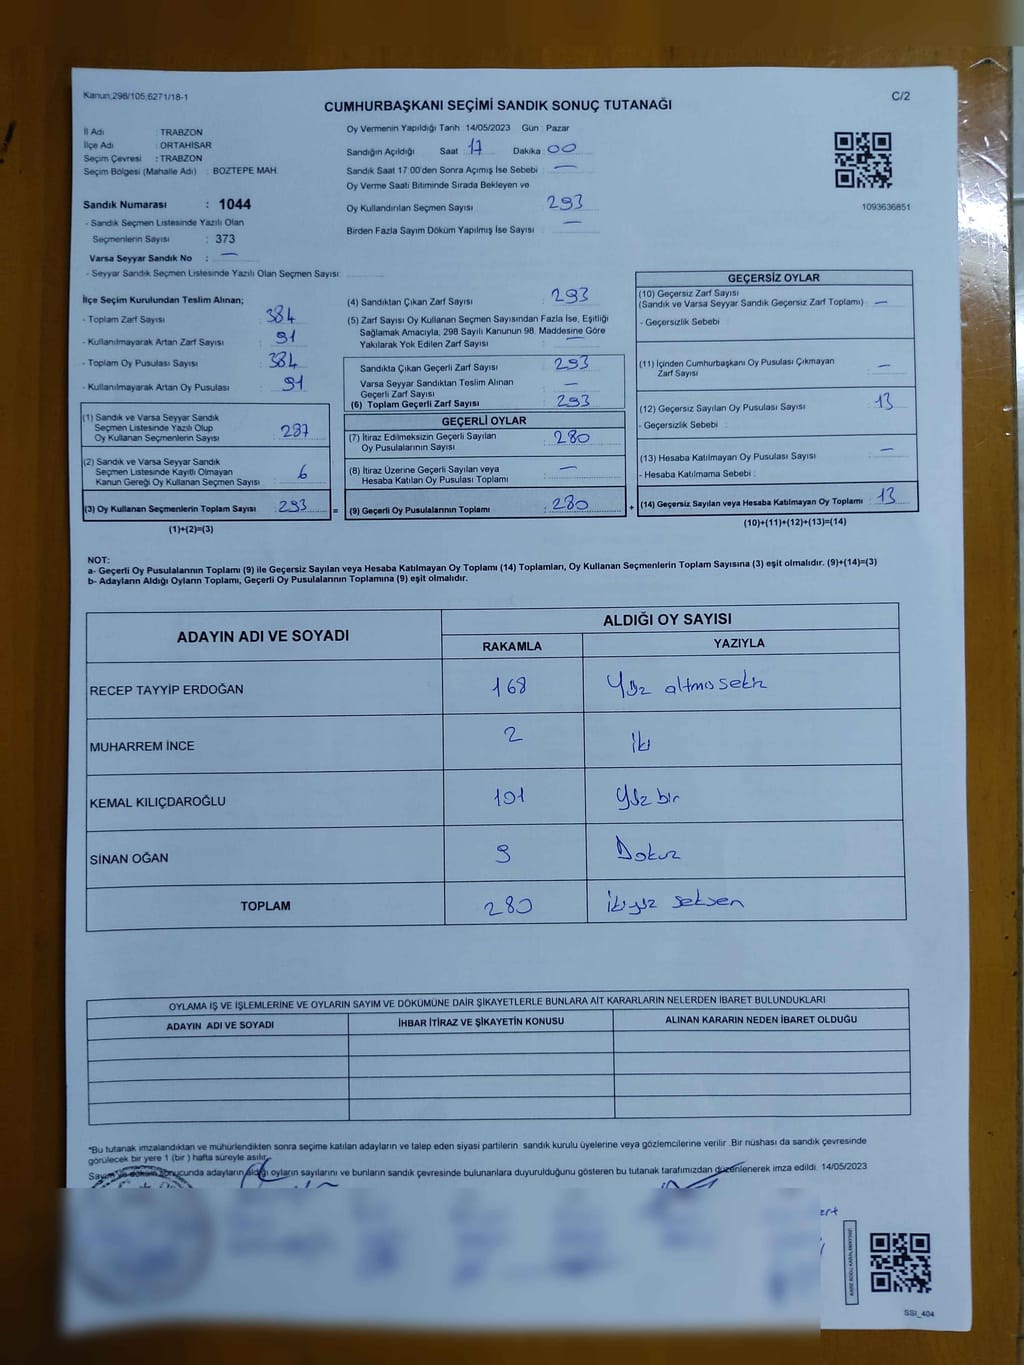 Kanun;298/105,6271/18-1
C/2
CUMHURBAŞKANI SEÇİMİ SANDIK SONUÇ TUTANAĞI
İl Adı : TRABZON
İlçe Adı : ORTAHİSAR
Seçim Çevresi : TRABZON
Seçim Bölgesi (Mahalle Adı) : BOZTEPE MAH
Sandık Numarası : 1044
- Sandık Seçmen Listesinde Yazılı Olan
Seçmenlerin Sayısı : 373
Varsa Seyyar Sandık No : —
- Seyyar Sandık Seçmen Listesinde Yazılı Olan Seçmen Sayısı
Oy Vermenin Yapıldığı Tarih 14/05/2023 Gün : Pazar
Sandığın Açıldığı Saat : 17 Dakika : 00
Sandık Saat 17:00'den Sonra Açımış İse Sebebi : —
Oy Verme Saati Bitiminde Sırada Bekleyen ve
Oy Kullandırılan Seçmen Sayısı : 293
Birden Fazla Sayım Döküm Yapılmış İse Sayısı : —
1093636851
İlçe Seçim Kurulundan Teslim Alınan;
- Toplam Zarf Sayısı : 384
- Kullanılmayarak Artan Zarf Sayısı : 91
- Toplam Oy Pusulası Sayısı : 384
- Kullanılmayarak Artan Oy Pusulası : 91
(1) Sandık ve Varsa Seyyar Sandık
Seçmen Listesinde Yazılı Olup
Oy Kullanan Seçmenlerin Sayısı : 287
(2) Sandık ve Varsa Seyyar Sandık
Seçmen Listesinde Kayıtlı Olmayan
Kanun Gereği Oy Kullanan Seçmen Sayısı : 6
(3) Oy Kullanan Seçmenlerin Toplam Sayısı : 293 =
(1)+(2)=(3)
(4) Sandıktan Çıkan Zarf Sayısı : 293
(5) Zarf Sayısı Oy Kullanan Seçmen Sayısından Fazla İse, Eşitliği
Sağlamak Amacıyla, 298 Sayılı Kanunun 98. Maddesine Göre
Yakılarak Yok Edilen Zarf Sayısı : —
Sandıkta Çıkan Geçerli Zarf Sayısı : 293
Varsa Seyyar Sandıktan Teslim Alınan
Geçerli Zarf Sayısı : —
(6) Toplam Geçerli Zarf Sayısı : 293
GEÇERLİ OYLAR
(7) İtiraz Edilmeksizin Geçerli Sayılan
Oy Pusulalarının Sayısı : 280
(8) İtiraz Üzerine Geçerli Sayılan veya
Hesaba Katılan Oy Pusulası Toplamı : —
(9) Geçerli Oy Pusulalarının Toplamı : 280 +
GEÇERSİZ OYLAR
(10) Geçersiz Zarf Sayısı
(Sandık ve Varsa Seyyar Sandık Geçersiz Zarf Toplamı) : —
- Geçersizlik Sebebi :
(11) İçinden Cumhurbaşkanı Oy Pusulası Çıkmayan
Zarf Sayısı : —
(12) Geçersiz Sayılan Oy Pusulası Sayısı : 13
- Geçersizlik Sebebi :
(13) Hesaba Katılmayan Oy Pusulası Sayısı : —
- Hesaba Katılmama Sebebi :
(14) Geçersiz Sayılan veya Hesaba Katılmayan Oy Toplamı : 13
(10)+(11)+(12)+(13)=(14)
NOT:
a- Geçerli Oy Pusulalarının Toplamı (9) ile Geçersiz Sayılan veya Hesaba Katılmayan Oy Toplamı (14) Toplamları, Oy Kullanan Seçmenlerin Toplam Sayısına (3) eşit olmalıdır. (9)+(14)=(3)
b- Adayların Aldığı Oyların Toplamı, Geçerli Oy Pusulalarının Toplamına (9) eşit olmalıdır.
ADAYIN ADI VE SOYADI
ALDIĞI OY SAYISI
RAKAMLA YAZIYLA
RECEP TAYYİP ERDOĞAN 168 Yüz altmışsekiz
MUHARREM İNCE 2 İki
KEMAL KILIÇDAROĞLU 101 Yüz bir
SİNAN OĞAN 9 Dokuz
TOPLAM 280 İkiyüz seksen
OYLAMA İŞ VE İŞLEMLERİNE VE OYLARIN SAYIM VE DÖKÜMÜNE DAİR ŞİKAYETLERLE BUNLARA AİT KARARLARIN NELERDEN İBARET BULUNDUKLARI
ADAYIN ADI VE SOYADI İHBAR İTİRAZ VE ŞİKAYETİN KONUSU ALINAN KARARIN NEDEN İBARET OLDUĞU
*Bu tutanak imzalandıktan ve mühürlendikten sonra seçime katılan adayların ve talep eden siyasi partilerin sandık kurulu üyelerine veya gözlemcilerine verilir .Bir nüshası da sandık çevresinde
görülecek bir yere 1 (bir ) hafta süreyle asılır.
Sayım ve döküm sonucunda adayların aldığı oyların sayılarını ve bunların sandık çevresinde bulunanlara duyurulduğunu gösteren bu tutanak tarafımızdan düzenlenerek imza edildi. 14/05/2023
KARE KODU KARALAMAYINIZ!
SSI_404